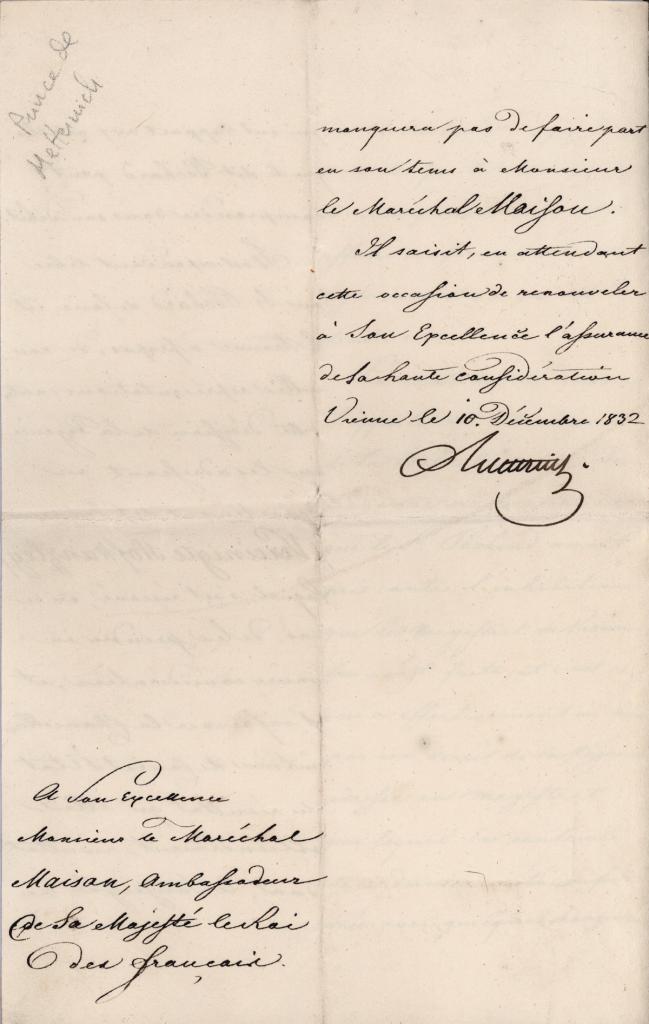 Prince de
Metternich
manquera pas de faire part
en son tems à Monsieur
le Maréchal Maison.
Il saisit, en attendant
cette occasion de renouveler
à Son Excellence l'assurance
de Sa haute considération
Vienne le 10. Décembre 1832
Metternich
A Son Excellence
Monsieur le Maréchal
Maison, Ambassadeur
de Sa Majesté le Roi
des français.